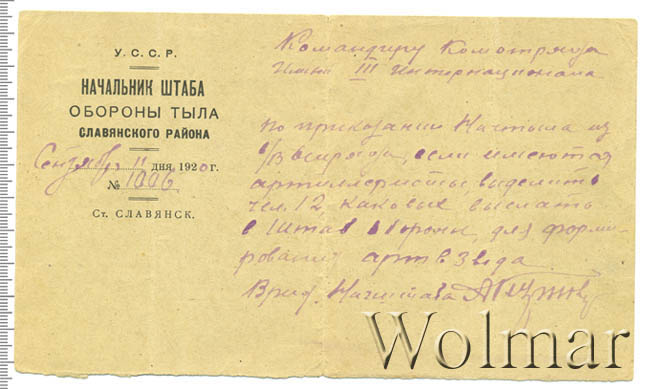 У. С. С. Р.
НАЧАЛЬНИК ШТАБА
ОБОРОНЫ ТЫЛА
СЛАВЯНСКОГО РАЙОНА
Сентября 11 дня 1920 г.
№ 1006
Ст. СЛАВЯНСК.
Командиру Комотряда
Имени III Интернационала
По приказанию из
если имеются
артиллеристы, выделить
чел. 12 каковых выслать
в Штаб Обороны, для форми-
рования артвзвода
Врид. Начштаба
Wolmar